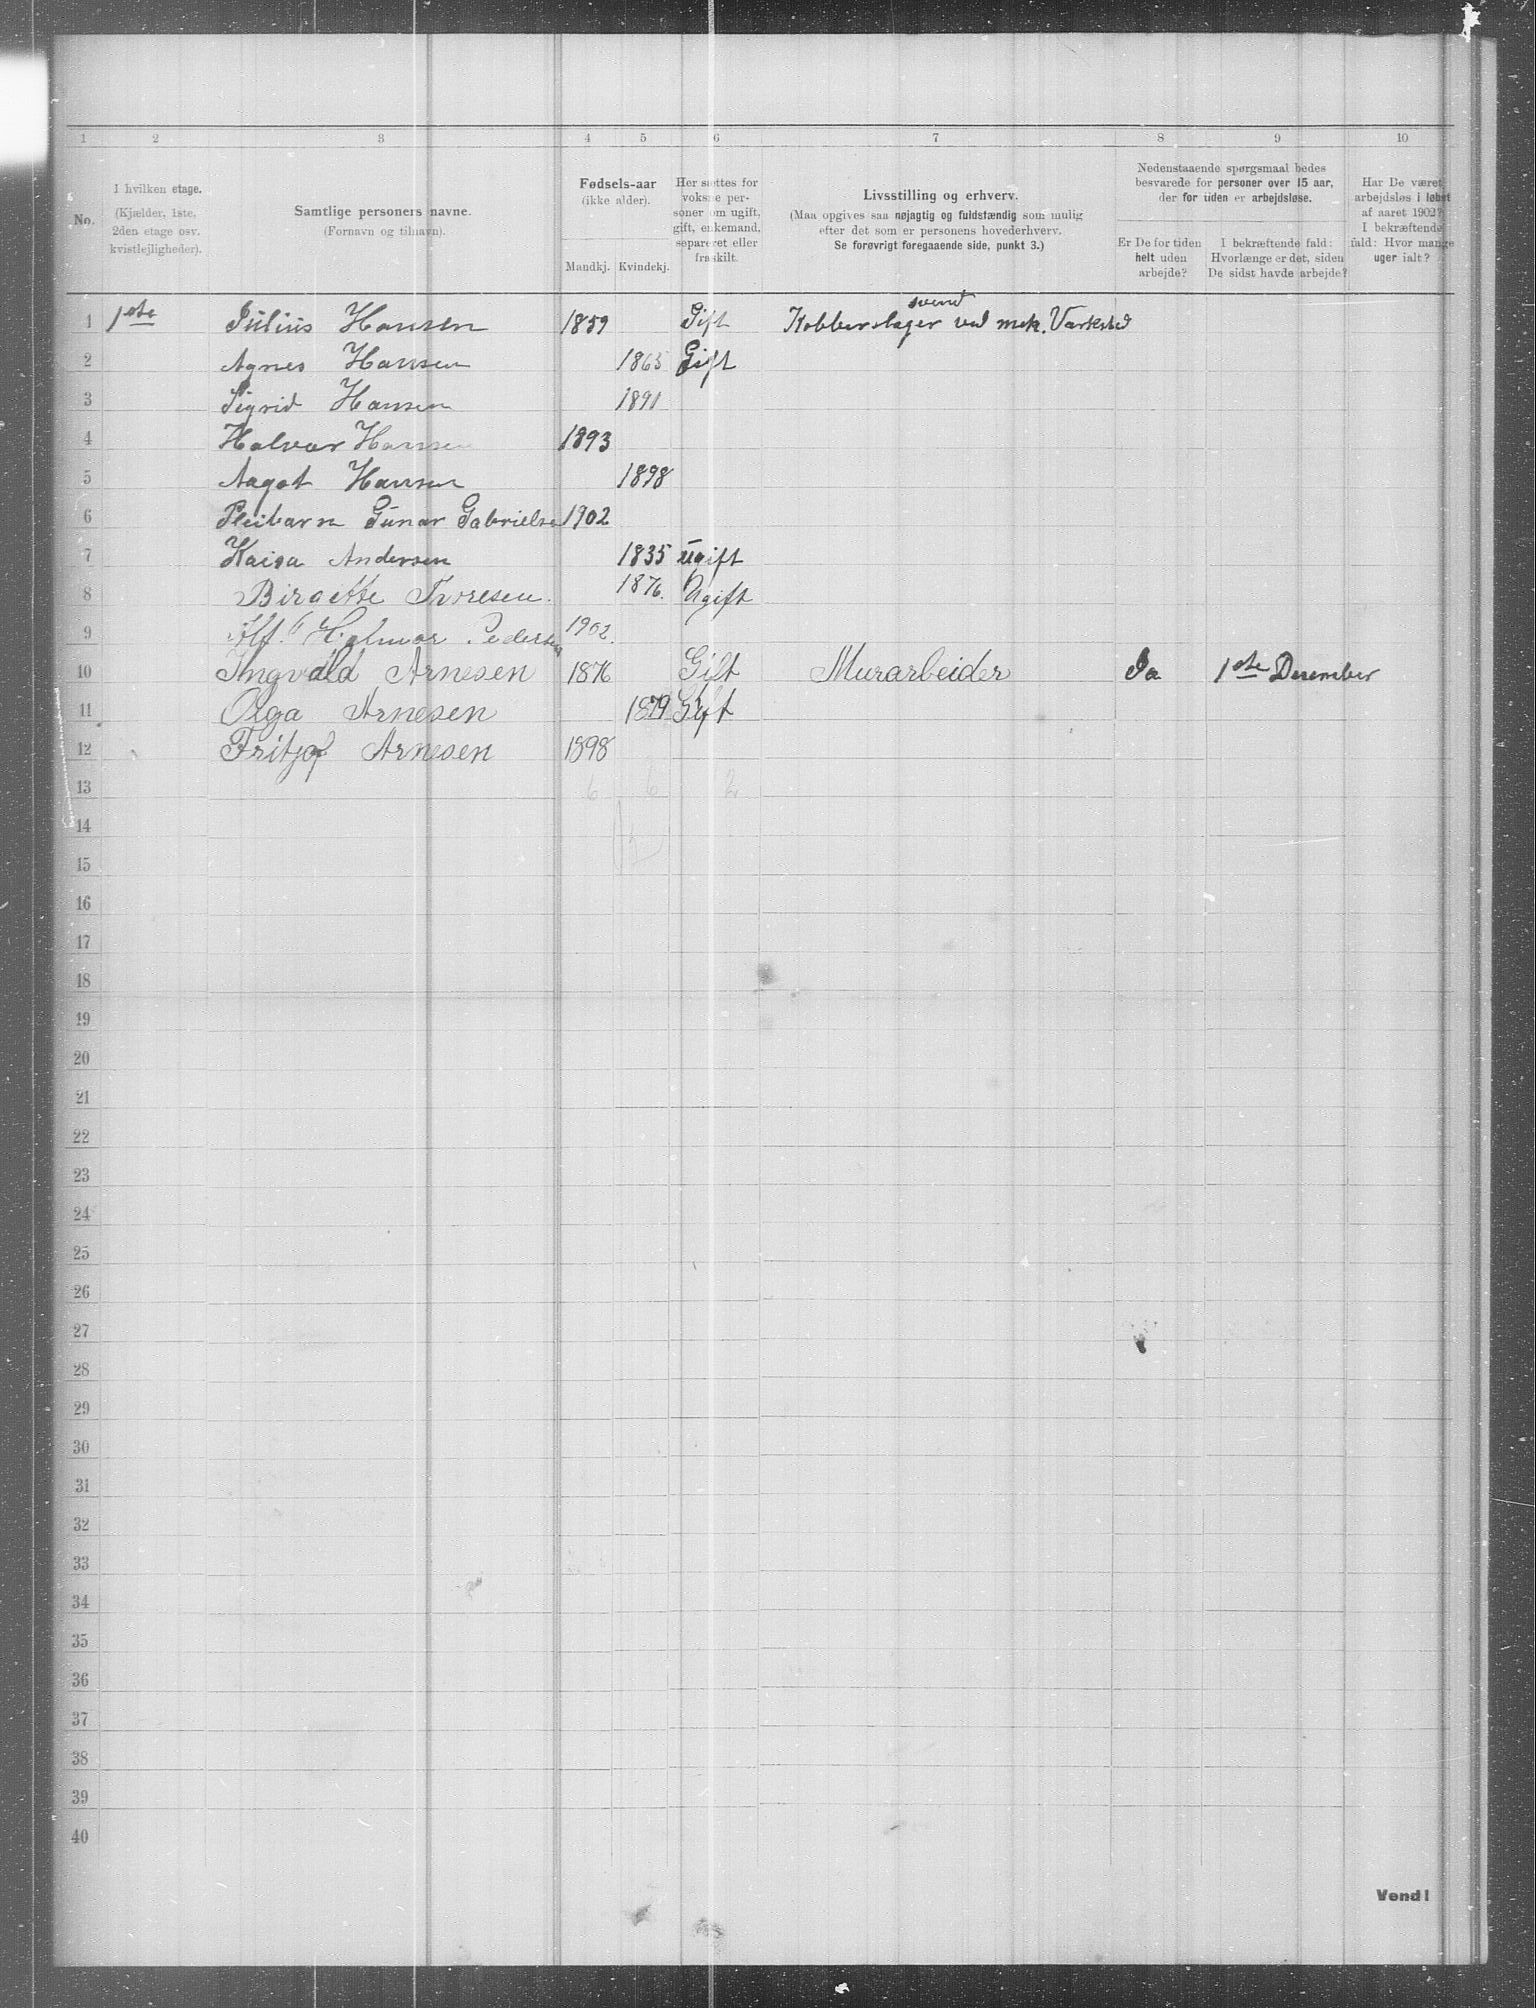 1 2 3 4 5 6 7 8 9 10
No.
I hvilken etage.
(Kjælder, 1ste,
2den etage osv.
kvistlejligheder).
Samtlige personers navne.
(Fornavn og tilnavn).
Fødsels-aar
(ikke alder).
Mandkj. Kvindekj.
Her sættes for
voksne per-
soner om ugift,
gift, enkemand,
separeret eller
fraskilt.
Livsstilling og erhverv.
(Maa opgives saa nøjagtig og fuldstændig som mulig
efter det som er personens hovederhverv.
Se forøvrigt foregaaende side, punkt 3.)
Nedenstaaende spørgsmaal bedes
besvarede for personer over 15 aar,
der for tiden er arbejdsløse.
Er De for tiden
helt uden
arbejde?
I bekræftende fald:
Hvorlænge er det, siden
De sidst havde arbejde?
Har De været
arbejdsløs i løbet
af aaret 1902?
I bekræftende
fald: Hvor mange
uger ialt?
svend
1 1ste Julius Hansen 1859 Gift Kobberslager ved mek. Værksted
2 Agnes Hansen 1865 Gift
3 Sigrid Hansen 1891
4 Halvar Hansen 1893
5 Aagot Hansen 1898
6 Pleibarn Gunar Gabrielsen 1902
7 Kaisa Andersen 1835 ugift
8 Birgette Thoresen. 1876. Ugift
9 Alf Hjalmar Pedersen 1902.
10 Ingvald Arnesen 1876 Gift Murarbeider Ja 1ste Desember
11 Olga Arnesen 1879 Gift
12 Fritjof Arnesen 1898
13 6 6 2
14
15
16
17
18
19
20
21
22
23
24
25
26
27
28
29
30
31
32
33
34
35
36
37
38
39
40
Vend!